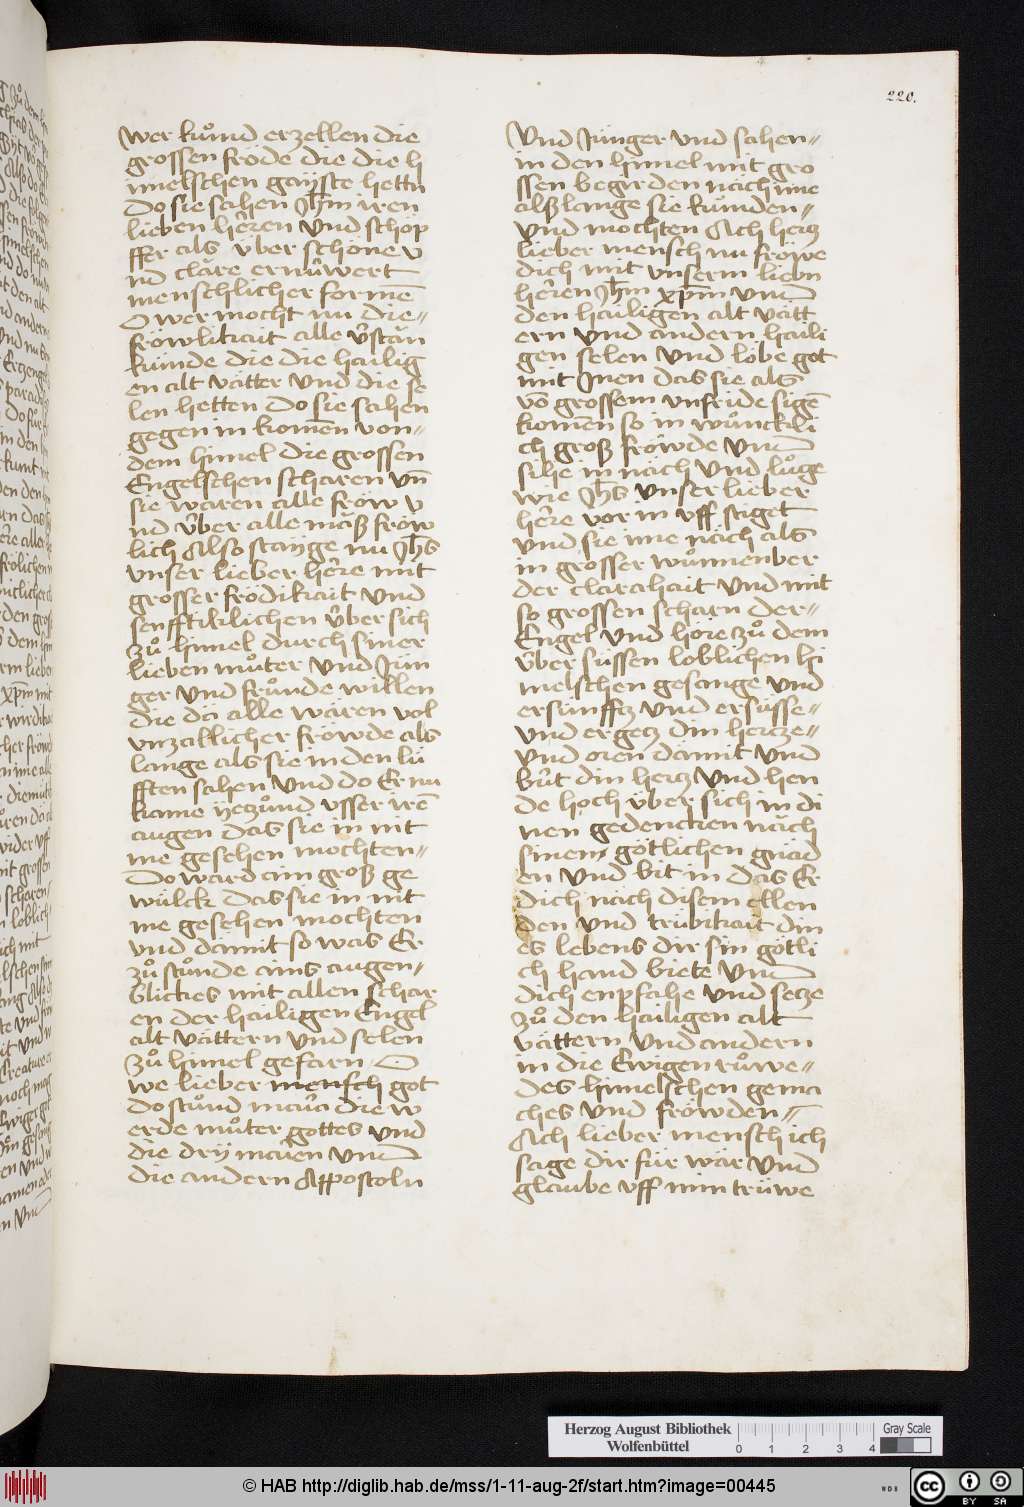 220.
wer kuͦnd erzellen die
grossen fröde die die h
imelschen gayste hettn
Do sie sahen Jhm̄ iren
lieben hēren vnd schöp
ffer als v̈ber schöne v
nd clare ernüwert
menschlicher formē
O wer mocht nu die⸗
fröwlikait alle v̄stān
künde die die hailig
en alt vätter vnd die se
len hetten do sie sahen
gegen in komēn von⸗
dem himel die grossen
Engelschen scharen vn̄
sie waren alle fröw v
nd v̈ber alle māß fröw
lich Also stayge nu Jhs̄
vnser lieber hēre mit
grosser frödikait vnd
senfftiklichen v̈ber sich
zuͦ himel durch siner
lieben muͦter vnd Jün
ger vnd fruͦnde willen
die dā alle wāren vol
vnzallicher fröwde als
lange als sie in den lü
fften sahen vnd do Er nu
kame yeczuͦnd vsser irē
augen das sie in nit
me gesehen mochten⸗
Do ward ain groß ge
wülck das sie in nit
me gesehen mochten
vnd damit so was Er
zuͦ stuͦnde ains augen⸗
blickes mit allen schar
en der hailigen Engel
alt vättern vnd selen
zuͦ himel gefarn O
we lieber mensch got
do stuͦnd maria die w
erde muͦter gottes vnd
die dry marien vnd
die andern Appostoln
Vnd Jünger vnd sahen⸗
in den himel mit gro
ssen begirden nāch ime
alß lange sie kuͦnden⸗
vnd mochten Ach hercz
lieber mensch nu fröwe
dich mit vnserm liebn
hēren Jhm̄ xp̄m vnd
den hailigen alt vätt
ern vnd andern haili
gen selen vnd löbe got
mit Jnen das sie als
vō grossem vnfride sigē
komēn so in wuͦnckli
ch groß fröwde vnd
sihe in nāch vnd luͦge
wie Jhs̄ vnser lieber
hēre vor in vff stiget
vnd sie ime nāch als
in grosser wuͦnnenber
der clarahait vnd mit
so grossen scharn der⸗
Engel vnd höre zuͦ dem
v̈ber süssen loblichen hi
melschen gesange vnd
ersünffcz vnd ersüsse⸗
vnd ergecz din hercze⸗
vnd oren damit vnd
büt din hercz vnd hen
de hoch v̈ber sich in di
nen gedencken nāch
sinem götlichen gnād
en vnd bit in das Er
dich nāch disem ellen
den vnd trübikait din
es lebens dir sin götli
ch hand biete vnd
dich enpfahe vnd secze
zuͦ den hailigen alt
vättern vnd andern
in die Ewigen ruͦwe⸗
des himelschen gema
ches vnd fröwden⸗
Ach lieber mensch ich
sage dir für wār vnd
glaube vff min trüwe
Herzog August Bibliothek
Wolfenbüttel
0 1 2 3 4
Gray Scale
© HAB http://diglib.hab.de/mss/1-11-aug-2f/start.htm?image=00445
WDB
cc BY SA